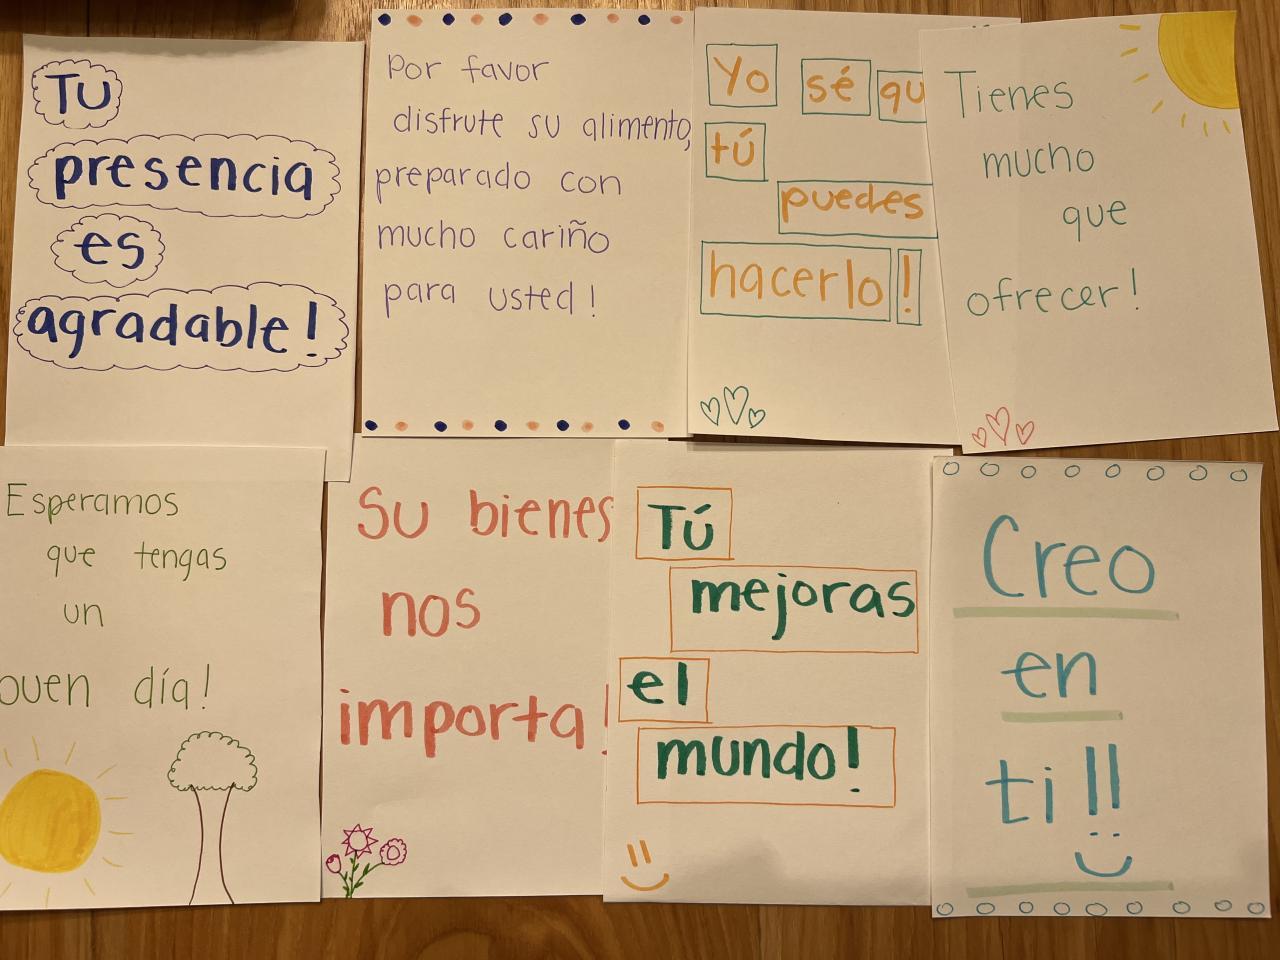 Tu
presencia
es
agradable!
Por favor
disfrute su alimento,
preparado con
mucho cariño
para usted!
Yo sé qu
tú
puedes
hacerlo!
Tienes
mucho
que
ofrecer!
Esperamos
que tengas
un
buen día!
Su bienes
nos
importa!
Tú
mejoras
el
mundo!
Creo
en
ti!!